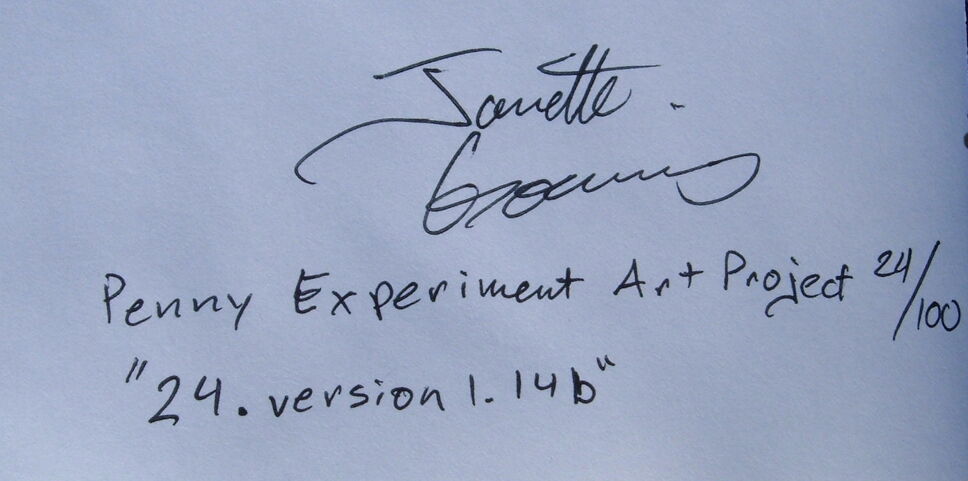 Janette
Penny Experiment Art Project 24/100
"24. version 1.14b"